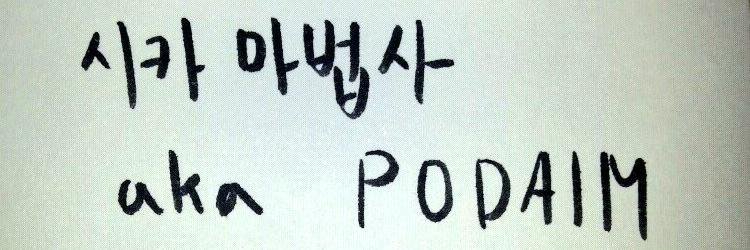 시카 마법사
aka PODAIM